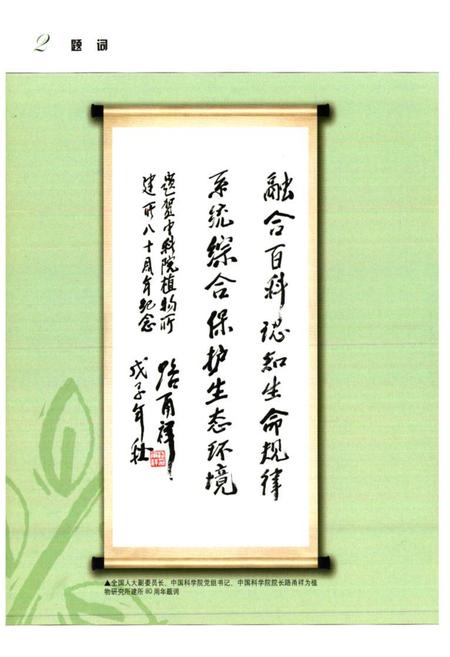 2 题词
融合百科认知生命规律
系统综合保护生态环境
祝贺中科院植物所
建所八十周年纪念
路甬祥
戊子年秋
▲全国人大副委员长、中国科学院党组书记、中国科学院院长路甬祥为植
物研究所建所80周年题词